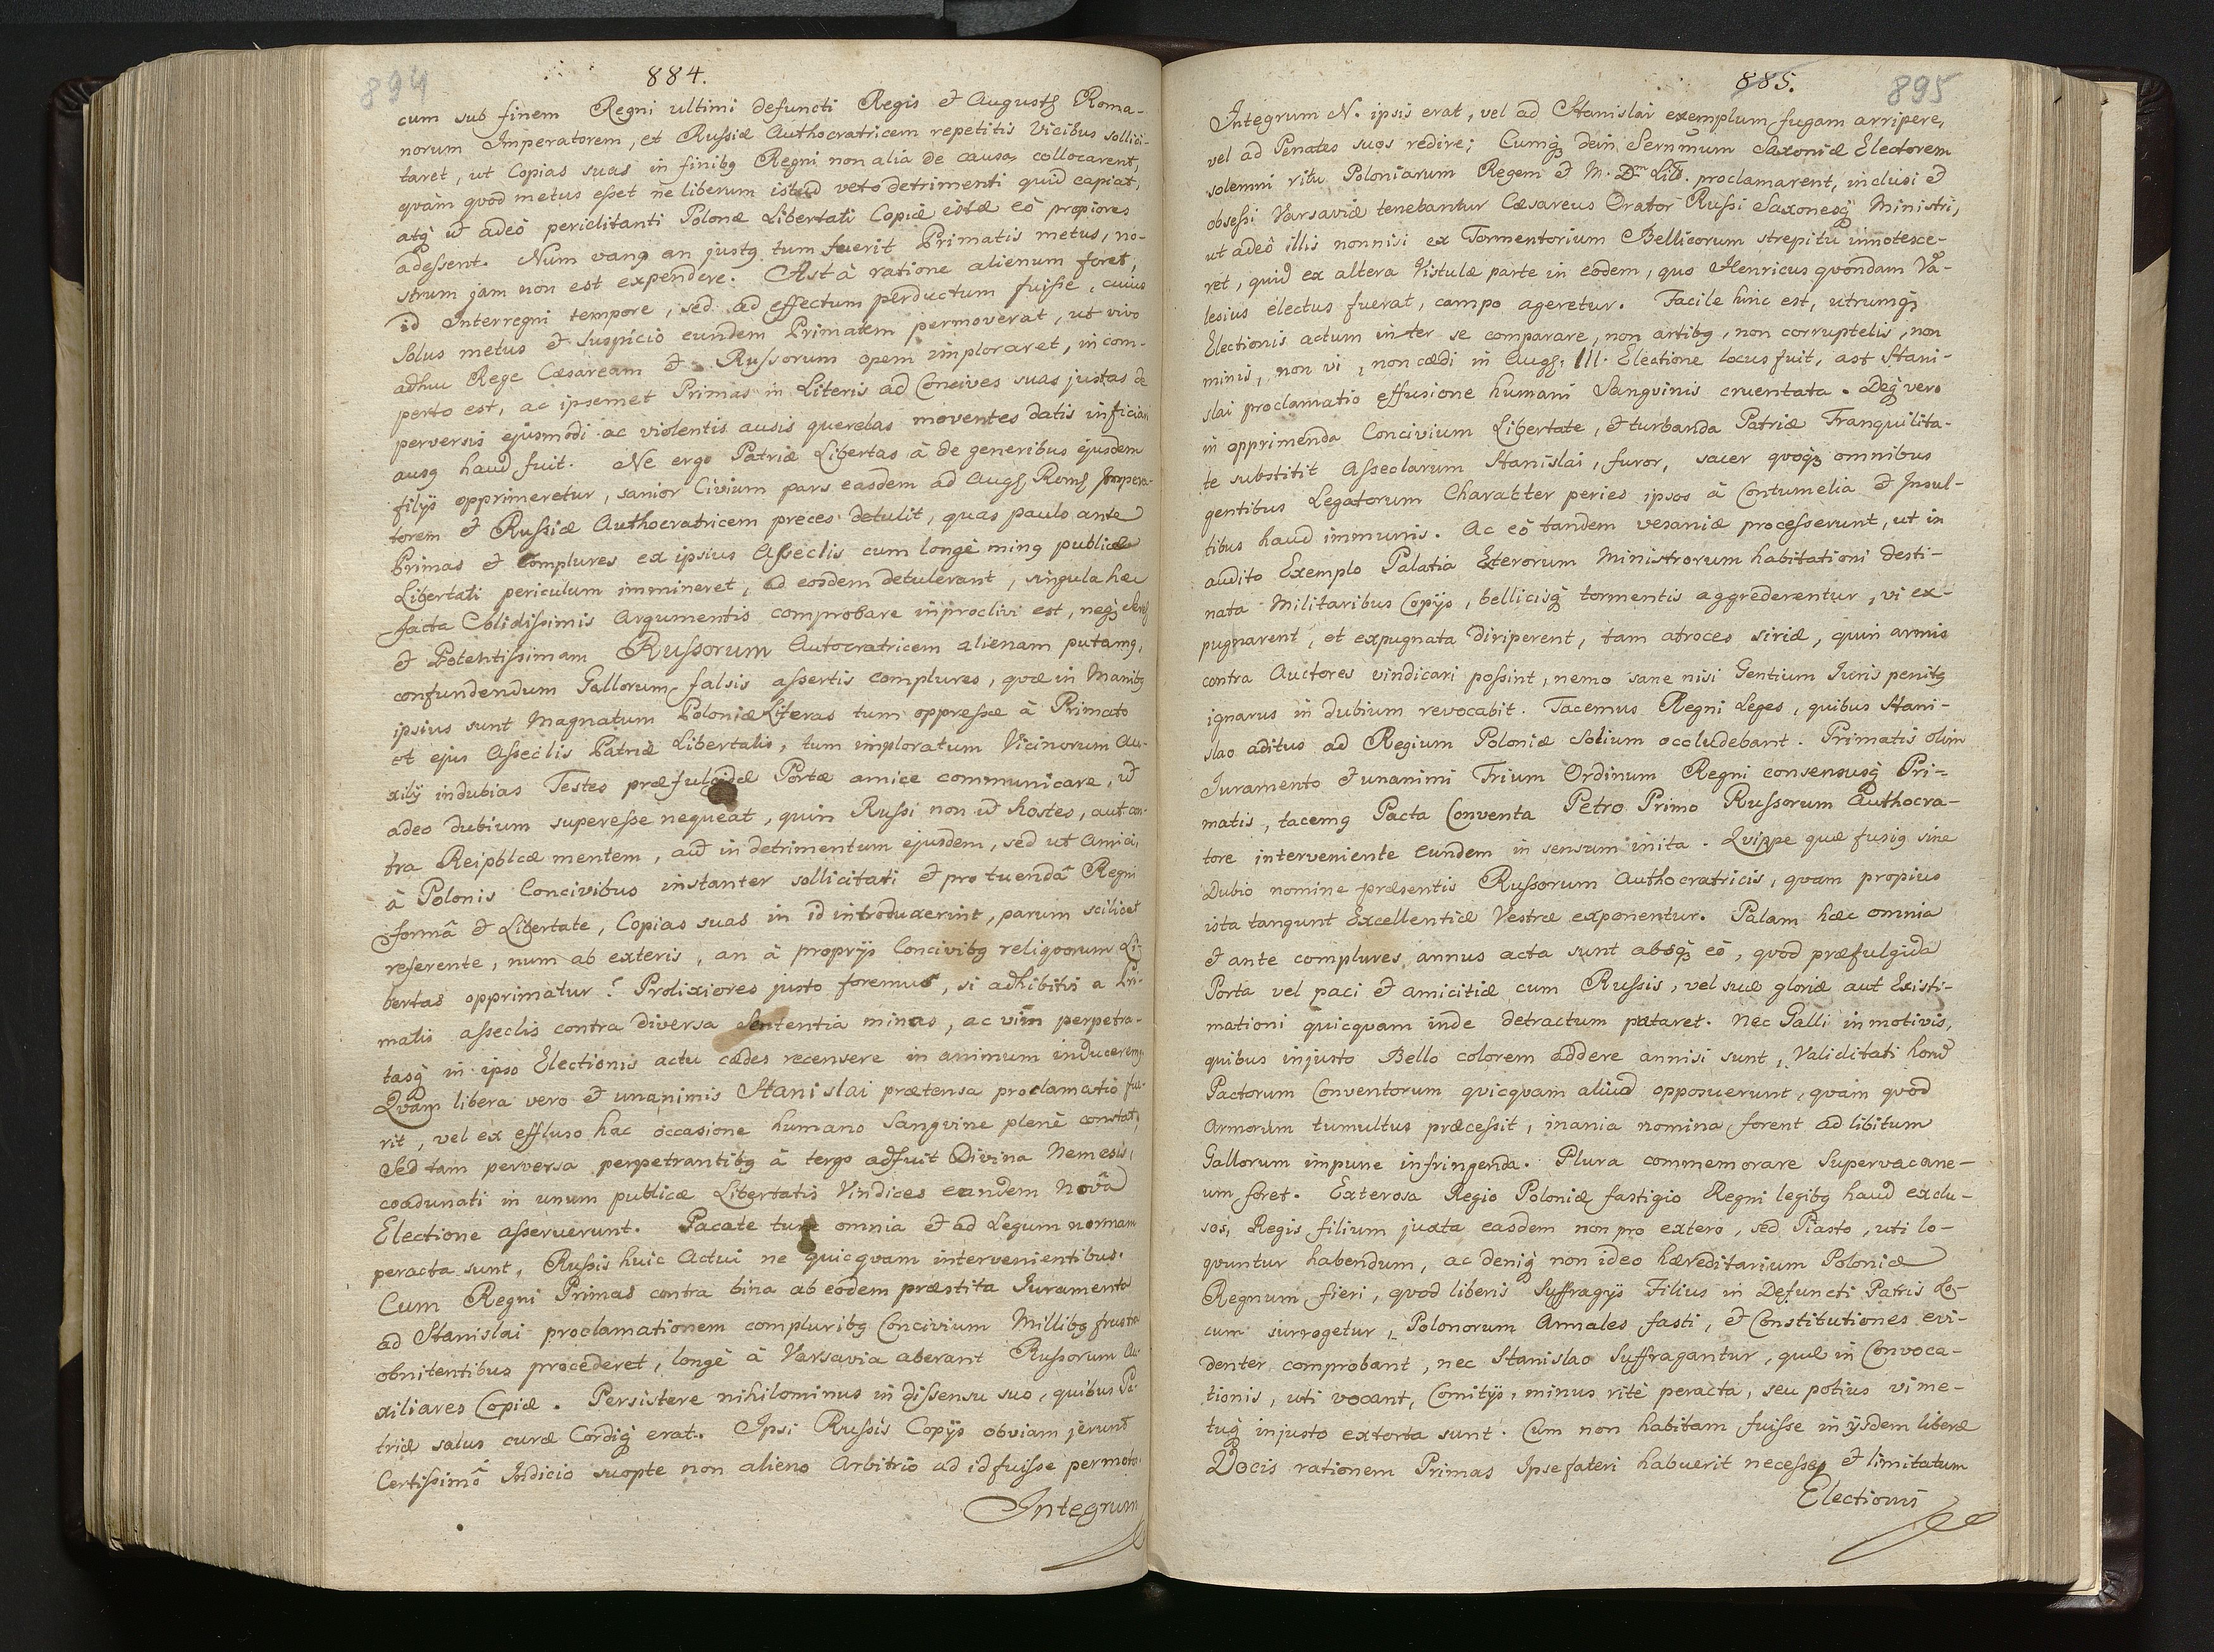 894
884.
cum sub finem Regni ultimi defuncti Regis et Augustꝫ Roma-
norum Imperatorem, et Russiæ Authocratricem repetitis Vicibus sollici-
taret, ut Copias suas in finibꝫ Regni non alia de causa collocarent,
quàm quod metus esset ne liberum istud veto detrimenti quid capiat,
atꝗ ut adeò periclitanti Polonæ Libertati Copiæ istæ eò propiores
adessent. Num vanꝫ an justꝫ tum fuerit Primatis metus, no-
strum jam non est expendere. Ast à ratione alienum foret,
id Interregni tempore, sed ad effectum perductum fuisse, cuius
solus metus et suspicio eundem Primatem permoverat, ut vivo
adhuc Rege Cæsaream et Russorum opem imploraret, in com-
perto est, ac ipsemet Primas in Literis ad Concives suas justas de
perversis ejusmodi ac violentis ausis querelas moventes datis inficiari
ausꝫ haud fuit. Ne ergo Patriæ Libertas à de generibus ejusdem
filijs opprimeretur, sanior Civium pars easdem ad Augꝫ Romꝫ Impera-
torem et Russiæ Authocratricem preces detulit, quas paulo ante
Primas et complures ex ipsius Asseclis cum longè minꝫ publicæ
Libertati periculum immineret, ad eosdem detulerant, singula hæc
facta solidissimis Argumentis comprobare in proclivi est, neꝗ
et Potentissimam Russorum Autocratricem alienam putamꝫ,
confundendum Gallorum falsis assertis complures, quæ in Manibꝫ
ipsius sunt Magnatum Poloniæ Literas tum oppressæ à Primate
et ejus Asseclis Patriæ Libertatis, tum imploratum Vicinorum Au-
xilij indubias Testes præfulgidæ Portæ amice communicare, ut
adeo dubium superesse nequeat, quin Russi non ut hostes, aut con-
tra Reipblcæ mentem, aut in detrimentum ejusdem, sed ut Amici,
à Polonis Concivibus instanter sollicitati et pro tuendâ Regni
formâ et Libertate, Copias suas in id introduxerint, parum scilicet
referente, num ab exteris, an à proprijs Concivibꝫ reliquorum Li-
bertas opprimatur? Prolixiores justo foremus, si adhibitis a Pri-
matis asseclis contra diversa sententia minas, ac vim perpetra-
tasꝗ in ipso Electionis actu cædes recensere in animum induceremꝫ
Quam libera vero et unanimis Stanislai prætensa proclamatio fue-
rit, vel ex effluso hac occasione humano Sangvine plenè constat,
Sed tam perversa perpetrantibꝫ à tergo adfuit Divina Nemesis,
coadunati in unum publicæ Libertatis Vindices eandem Novâ
Electione asseruerunt. Pacate tunc omnia et ad Legum normam
peracta sunt, Russis huic Actui ne quicquam intervenientibus.
Cum Regni Primas contra bina ab eodem præstita Juramenta
ad Stanislai proclamationem compluribꝫ Concivium Millibꝫ frustra
obnitentibus procederet, longè à Varsavia aberant Russorum Au-
xiliares Copiæ. Persistere nihilominus in dissensu suo, quibus Pa-
triæ salus curæ Cordiꝗ erat. Ipsi Russis Copijs obviam jerunt
Certissimô Indicio suopte non alieno Arbitriô ad id fuisse permotos
Integrum
885.
895
Integrum N. ipsis erat, vel ad Stanislai exemplum fugam arripere,
vel ad Penates suos redire; Cumꝗ dein Sernmum Saxoniæ Electorem
solemni ritu Poloniarum Regem et M. Dm Litt. proclamarent, inclusi et
obsessi Varsaviæ tenebantur Cæsareus Orator Russi Saxonesꝗ Ministri,
ut adeò illis nonnisi ex Tormentorium Bellicorum strepitu innotesce-
ret, quid ex altera Vistulæ parte in eodem, quo Henricus quondam Va-
lesius electus fuerat, campo ageretur. Facile hinc est, utrumꝗ
Electionis actum inter se comparare, non artibꝫ, non corruptelis, non
minis, non vi, non cædi in Augꝫ. III. Electione locus fuit, ast Stani-
slai proclamatio effusione humani Sangvinis cruentata. Neꝗ vero
in opprimenda Concivium Libertate, et turbanda Patriæ Tranquilita-
te substitit Asseclarum Stanislai, furor, sacer quoꝗ omnibus
gentibus Legatorum Charakter peries ipsos à Contumelia et Insul-
tibus haud immunis. Ac eò tandem vesaniæ processerunt, ut in
audito Exemplo Palatia Exterorum Ministrorum habitationi desti-
nata Militaribus Copijs, bellicisꝗ tormentis aggrederentur, vi ex-
pugnarent, et expugnata diriperent, tam atroces siriæ, quin armis
contra Auctores vindicari possint, nemo sane nisi Gentium Juris penitꝫ
ignarus in dubium revocabit. Tacemus Regni Leges, quibus Stani-
slao aditus ad Regium Poloniæ Solium occludebant. Primatis olim
Juramento et unanimi Trium Ordinum Regni consensusꝗ Pri-
matis, tacemꝫ Pacta Conventa Petro Primo Russorum Authocra-
tore interveniente eundem in sensum inita. Quippe quæ fusiꝫ sine
Dubio nomine præsentis Russorum Authocratricis, quam propius
ista tangunt Excellentiæ Vestræ exponentur. Palam hæc omnia
et ante complures annus acta sunt absꝗ eò, quod præfulgida
Porta vel paci et amicitiæ cum Russis, vel suæ gloriæ aut Existi-
mationi quicquam inde detractum putaret. Nec Galli in motivis,
quibus injusto Bello colorem addere annisi sunt, Validitati horum
Pactorum Conventorum quicquam aliud opposuerunt, quàm quod
Armorum tumultus præcessit, inania nomina forent ad libitum
Gallorum impune infringenda. Plura commemorare Supervacane-
um foret. Exterosa Regio Poloniæ fastigio Regni legibꝫ haud exclu-
sos, Regis filium juxta easdem non pro extero, sed Piasto, uti lo-
quntur habendum, ac deniꝗ non ideo hæreditarium Poloniæ
Regnum fieri, quod liberis Suffragijs Filius in Defuncti Patris Lo-
cum surrogetur, Polonorum Annales, fasti, et Constitutiones evi-
denter comprobant, nec Stanislao Suffragantur, quæ in Convoca-
tionis, uti vocant, Comitijs, minus ritè peracta, seu potius vi me-
tuꝗ injusto extorta sunt. Cum non habitam fuisse in ijsdem liberæ
Vocis rationem Primas Ipse fateri habuerit necesse, et limitatum
Electionis